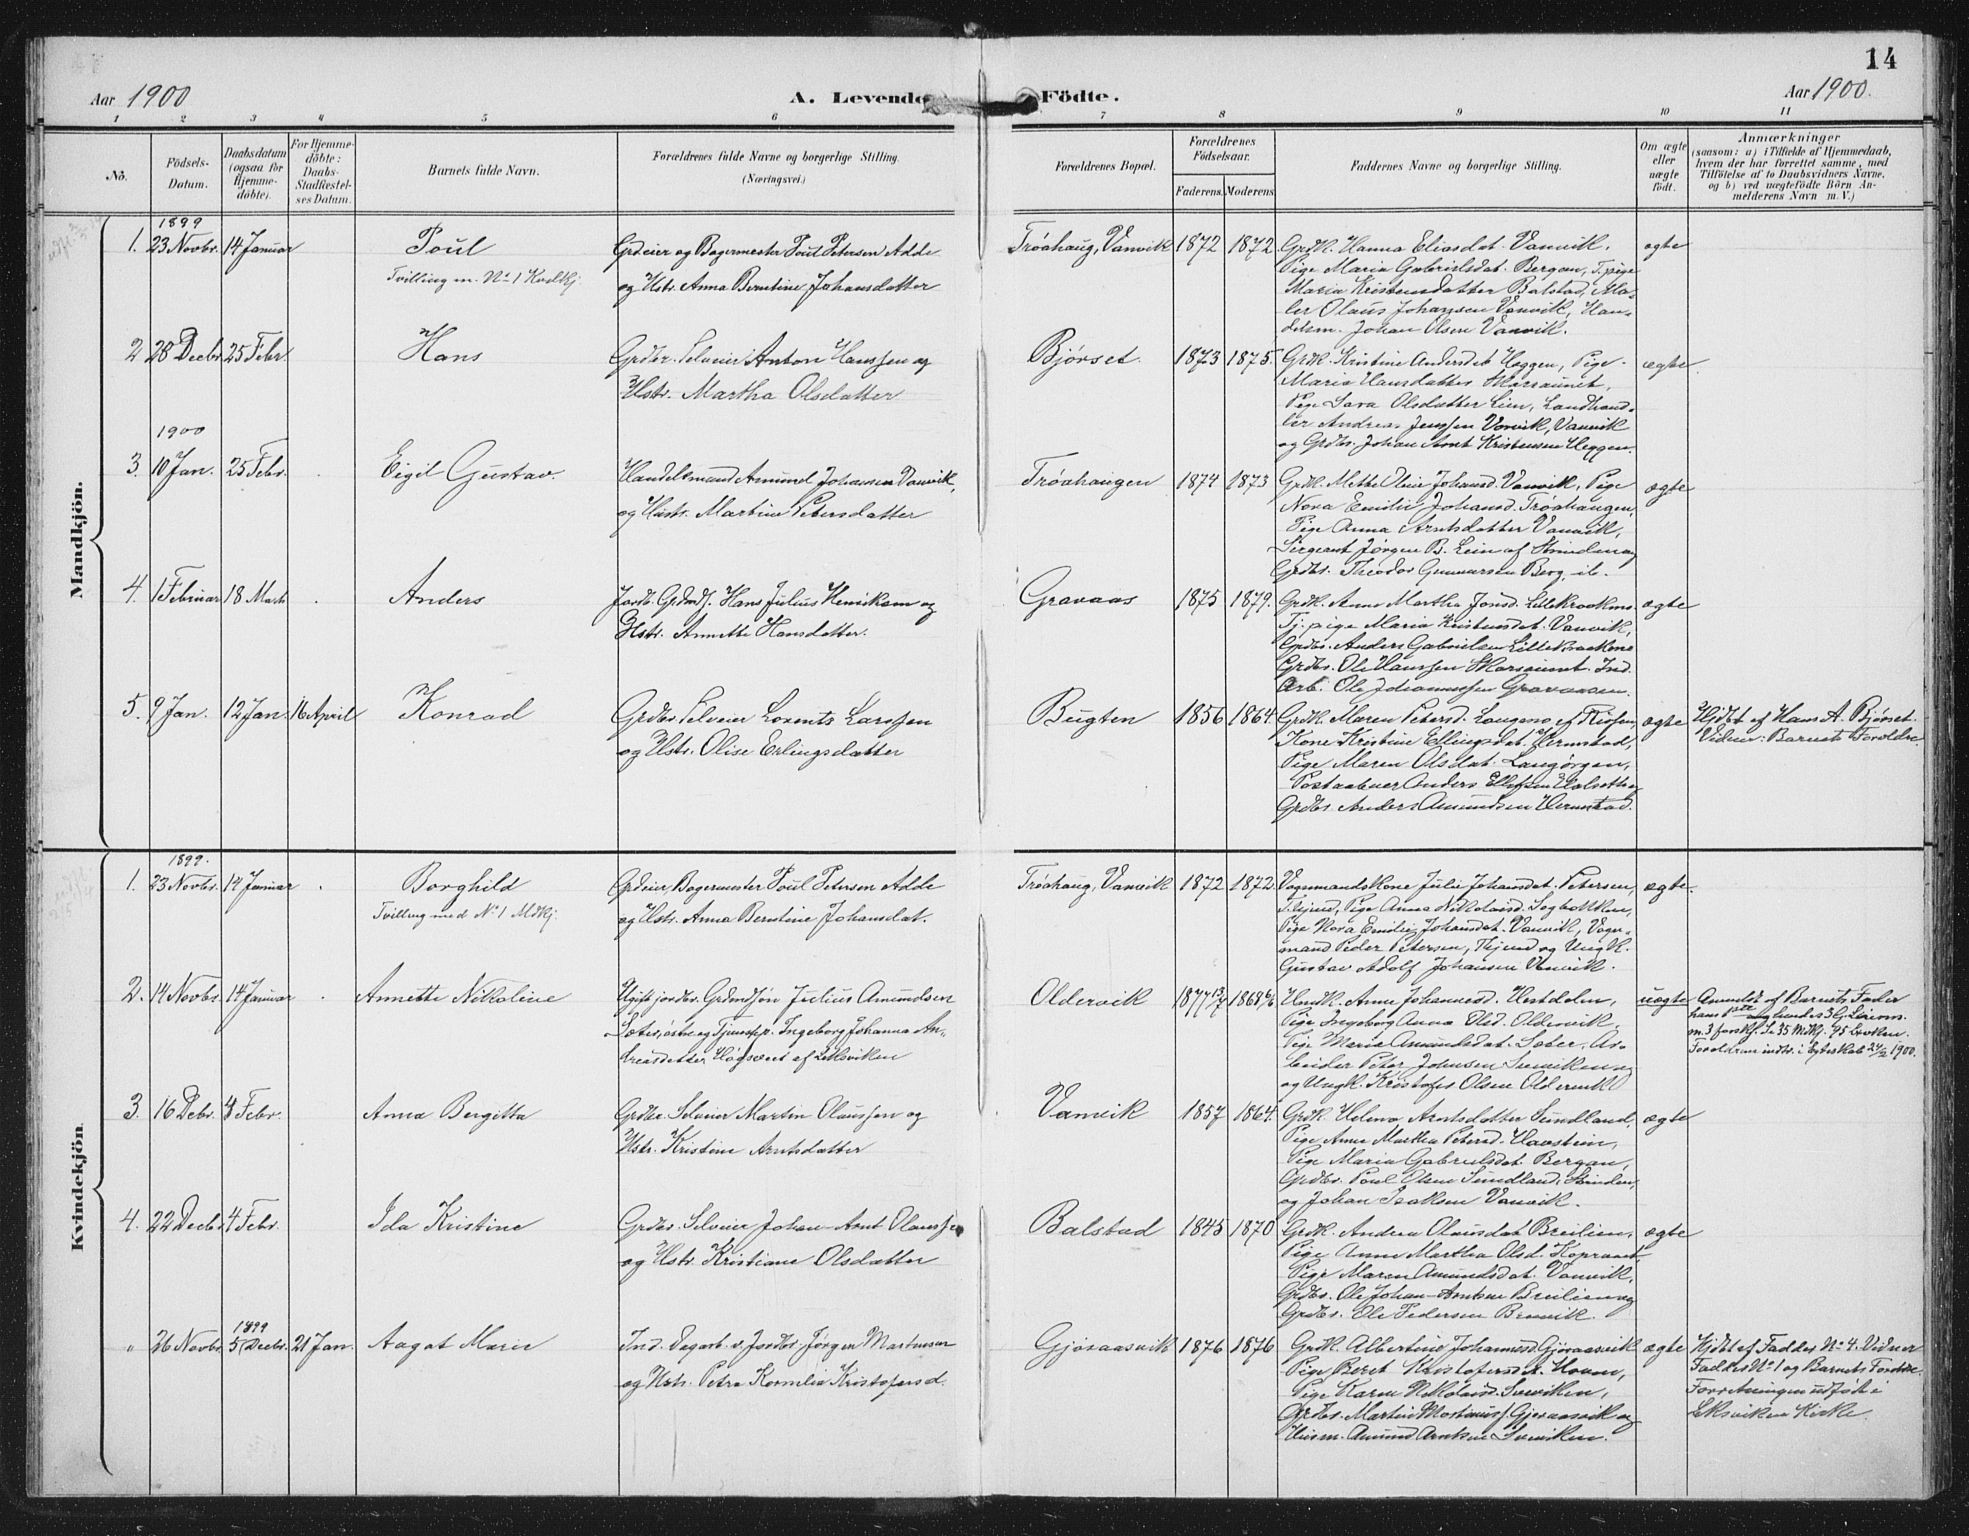 14
Aar 1900
A. Levende Födte.
Aar 1900.
1 2 3 4 5 6 7 8 9 10 11
No.
Födsels-
Datum.
Daabsdatum
(ogsaa for
Hjemme-
döbte).
For Hjemme-
döbte:
Daabs-
Stadfæstel-
ses Datum.
Barnets fulde Navn.
Forældrenes fulde Navne og borgerlige Stilling.
(Næringsvei.)
Forældrenes Bopæl.
Forældrenes
Födselsaar.
Faderens. Moderens.
Faddernes Navne og borgerlige Stilling.
Om ægte
eller
uægte
födt.
Anmærkninger
(saasom: a) i Tilfælde af Hjemmedaab,
hvem der har forrettet samme, med
Tilföielse af to Daabsvidners Navne,
og b) ved uægtefödte Börn An-
melderens Navn m. V.)
Mandkjön.
1899
1. 23 Novbr. 14 Januar
Poul
Tvilling m. No 1 Kvdkj.
Grdeier og Bagermester Poul Petersen Adde
og Hstr. Anna Berntine Johansdatter
Tröahaug, Vanvik 1872 1872
Grdk. Hanna Eliasdat. Vanvik,
Pige Maria Gabrielsdat. Bergan, Tjpige
Maria Kristensdatter Balstad, Ma-
ler Olaus Johansen Vanvik, Han-
delsm. Johan Olsen Vanvik.
ægte
2 28 Decbr 25 Febr.
Hans
Grdbr. Selveier Anton Hanssen og
Hstr. Martha Olsdatter
Bjørset. 1873 1875.
Grdk. Kristine Andersdat. Heggen, Pige
Maria Hansdatter Marsaunet,
Pige Sara Olsdatter Lien, Landhand-
ler Andreas Jenssen Vanvik, Vanvik
og Grdbr. Johan Arnt Kristensen Heggen.
ægte
1900
3. 10 Jan. 25 Febr.
Eigil Gustav.
Handelsmand Amund Johansen Vanvik,
og Hustr. Martine Petersdatter
Tröahaugen 1874 1873
Grdk. Mette Oline Johansd. Vanvik, Pige
Nora Emilie Johansd. Tröahaugen,
Pige Anna Arntsdatter Vanvik,
Sergeant Jörgen B. Lein af Strinden og
Grdbr. Theodor Gunnarsen Berg, ib.
ægte
4. 1 Februar 18 Marts
Anders
Jordb. Grdmds. Hans Julius Henriksen og
Hstr. Annette Hansdatter.
Gravaas 1875 1879.
Grdk. Anne Martha Jonsd. Lillekraakmo
Tj.pige Maria Kristensdat. Vanvik,
Grdbr. Anders Gabrielsen Lillekraakmo
Grdbr. Ole Hanssen Marsaunet. Ind.
Arb. Ole Johannessen Gravaasen.
ægte
5. 9 Jan. 12 Jan. 16 April
Konrad
Grdbr. Selveier Lorents Larssen
og Hstr. Olise Erlingsdatter
Bugten 1856 1864.
Grdk. Maren Petersd. Langeng af Rissen,
Kone Kristine Ellingsdat. Hermstad,
Pige Maren Olsdat. Langørgen,
Postaabner Anders Ellefsen Halsetheg
Grdbr. Anders Amundsen Hermstad.
ægte
Hjdbt af Hans A. Bjørset.
Vidner: Barnets Forældre.
Kvindekjön.
1899.
1. 23 Novbr. 14 Januar
Borghild
Tvilling med No 1 Mdkj.
Grdeier, Bagermester Poul Petersen Adde
og Hstr. Anna Berntine Johansdat.
Tröahaug, Vanvik 1872 1872.
Vognmandskone Julie Johansdat. Petersen,
Pige Anna Nikolaisd.
Pige Nora Emilie Johansdat. Vanvik, Vogn-
mand Peder Petersen, og Ungk.
Gustav Adolf Johansen Vanvik.
ægte.
2. 14 Novbr. 14 Januar
Annette Nikoline
Ugift jordbr. Grdmdsön Julius Amundsen
Sæter, östre og Tjenestep. Ingeborg Johanna An-
dreasdatter Högsveet af Leksviken
Oldervik 1877 13/7 1868 6/6
Husk. Anne Johannesd. Hestdalen,
Pige Ingeborg Anna Olsd. Oldervik,
Pige Maria Amundsdat. Sæter, Ar-
beider Peter Johnsen Svenviken og
og Ungk. Kristofer Olsen Oldervik
uægte
Anmeldt af Barnets Fader
Forældrene indtr. i Egteskab 24/2 1900.
3. 16 Debr. 4 Febr.
Anna Bergitta
Grdbr. Selveier Martin Olaussen og
Hstr. Kristine Arntsdatter
Vanvik 1857 1864.
Grdk. Helena Arntsdatter Sundland,
Pige Anne Martha Petersd. Havstein,
Pige Maria Gabrielsdat. Bergan,
Grdbr. Poul Olsen Sundland, Strinden,
og Johan Isaksen Vanvik.
ægte
4. 22 Decbr 4 Febr.
Ida Kristine
Grdbr. Selveier Johan Arnt Olaussen
og Hstr. Kristiane Olsdatter
Balstad 1845 1870
Grdk. Andrea Olausdat. Breilien,
Pige Anne Martha Olsd. Kopraaet,
Pige Maren Amundsdat. Vanvik,
Grdbr. Ole Johan Arntsen Breilien og
Grdbr. Ole Pedersen Brenvik.
ægte
1899
" 26 Novbr. 5 Decbr. 21 Jan.
Aagot Marie
Ind. Dagarb. v. Jordbr. Jörgen Martinusen
og Hstr. Petra Kornelia Kristofersd.
Gjöraasvik 1876 1876
Grdk. Albertine Johannesd. Gjöraasvik
Pige Beret Kristofersdat. Hoven,
Pige Karen Nikolaisd. Svenviken,
Grdbr. Martin Martinuss. Gjeraasvik og
Husm. Amund Arntsen Svenviken.
ægte
Hjdbt af Fadder No 4. Vidner
Fadder No 1 og Barnets Forældre.
Forretningen udfört i
Leksvikens Kirke.